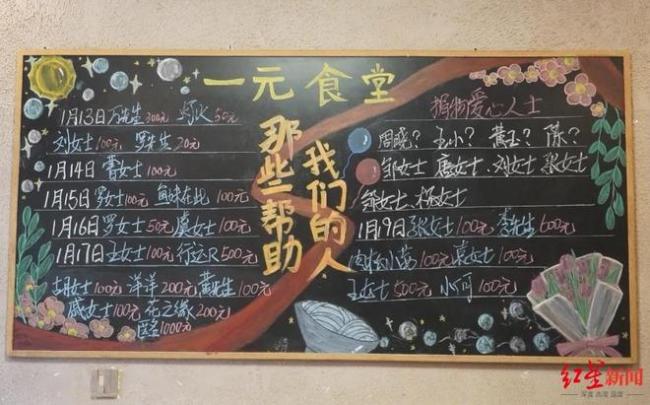 一元食堂
那些帮助
我们的人
1月13日 万先生300元 灯火50元
刘女士100元 罗先生20元
1月14日 曹女士100元
1月15日 罗女士100元 鱼妹在此100元
1月16日 罗女士50元 虞女士100元
1月17日 王女士100元 行远R500元
胡女士100元 洋洋200元 黄先生100元
戚女士100元 花之缘200元
匿名1000元
捐物爱心人士
周晓? 王小? 黄玉? 陈?
邹女士、唐女士、刘女士 张女士
邹女士、杨女士
1月9日 张女士100元 李先生600元
小苗100元 袁女士100元
王女士500元 小可100元
红星新闻
深度 态度 温度